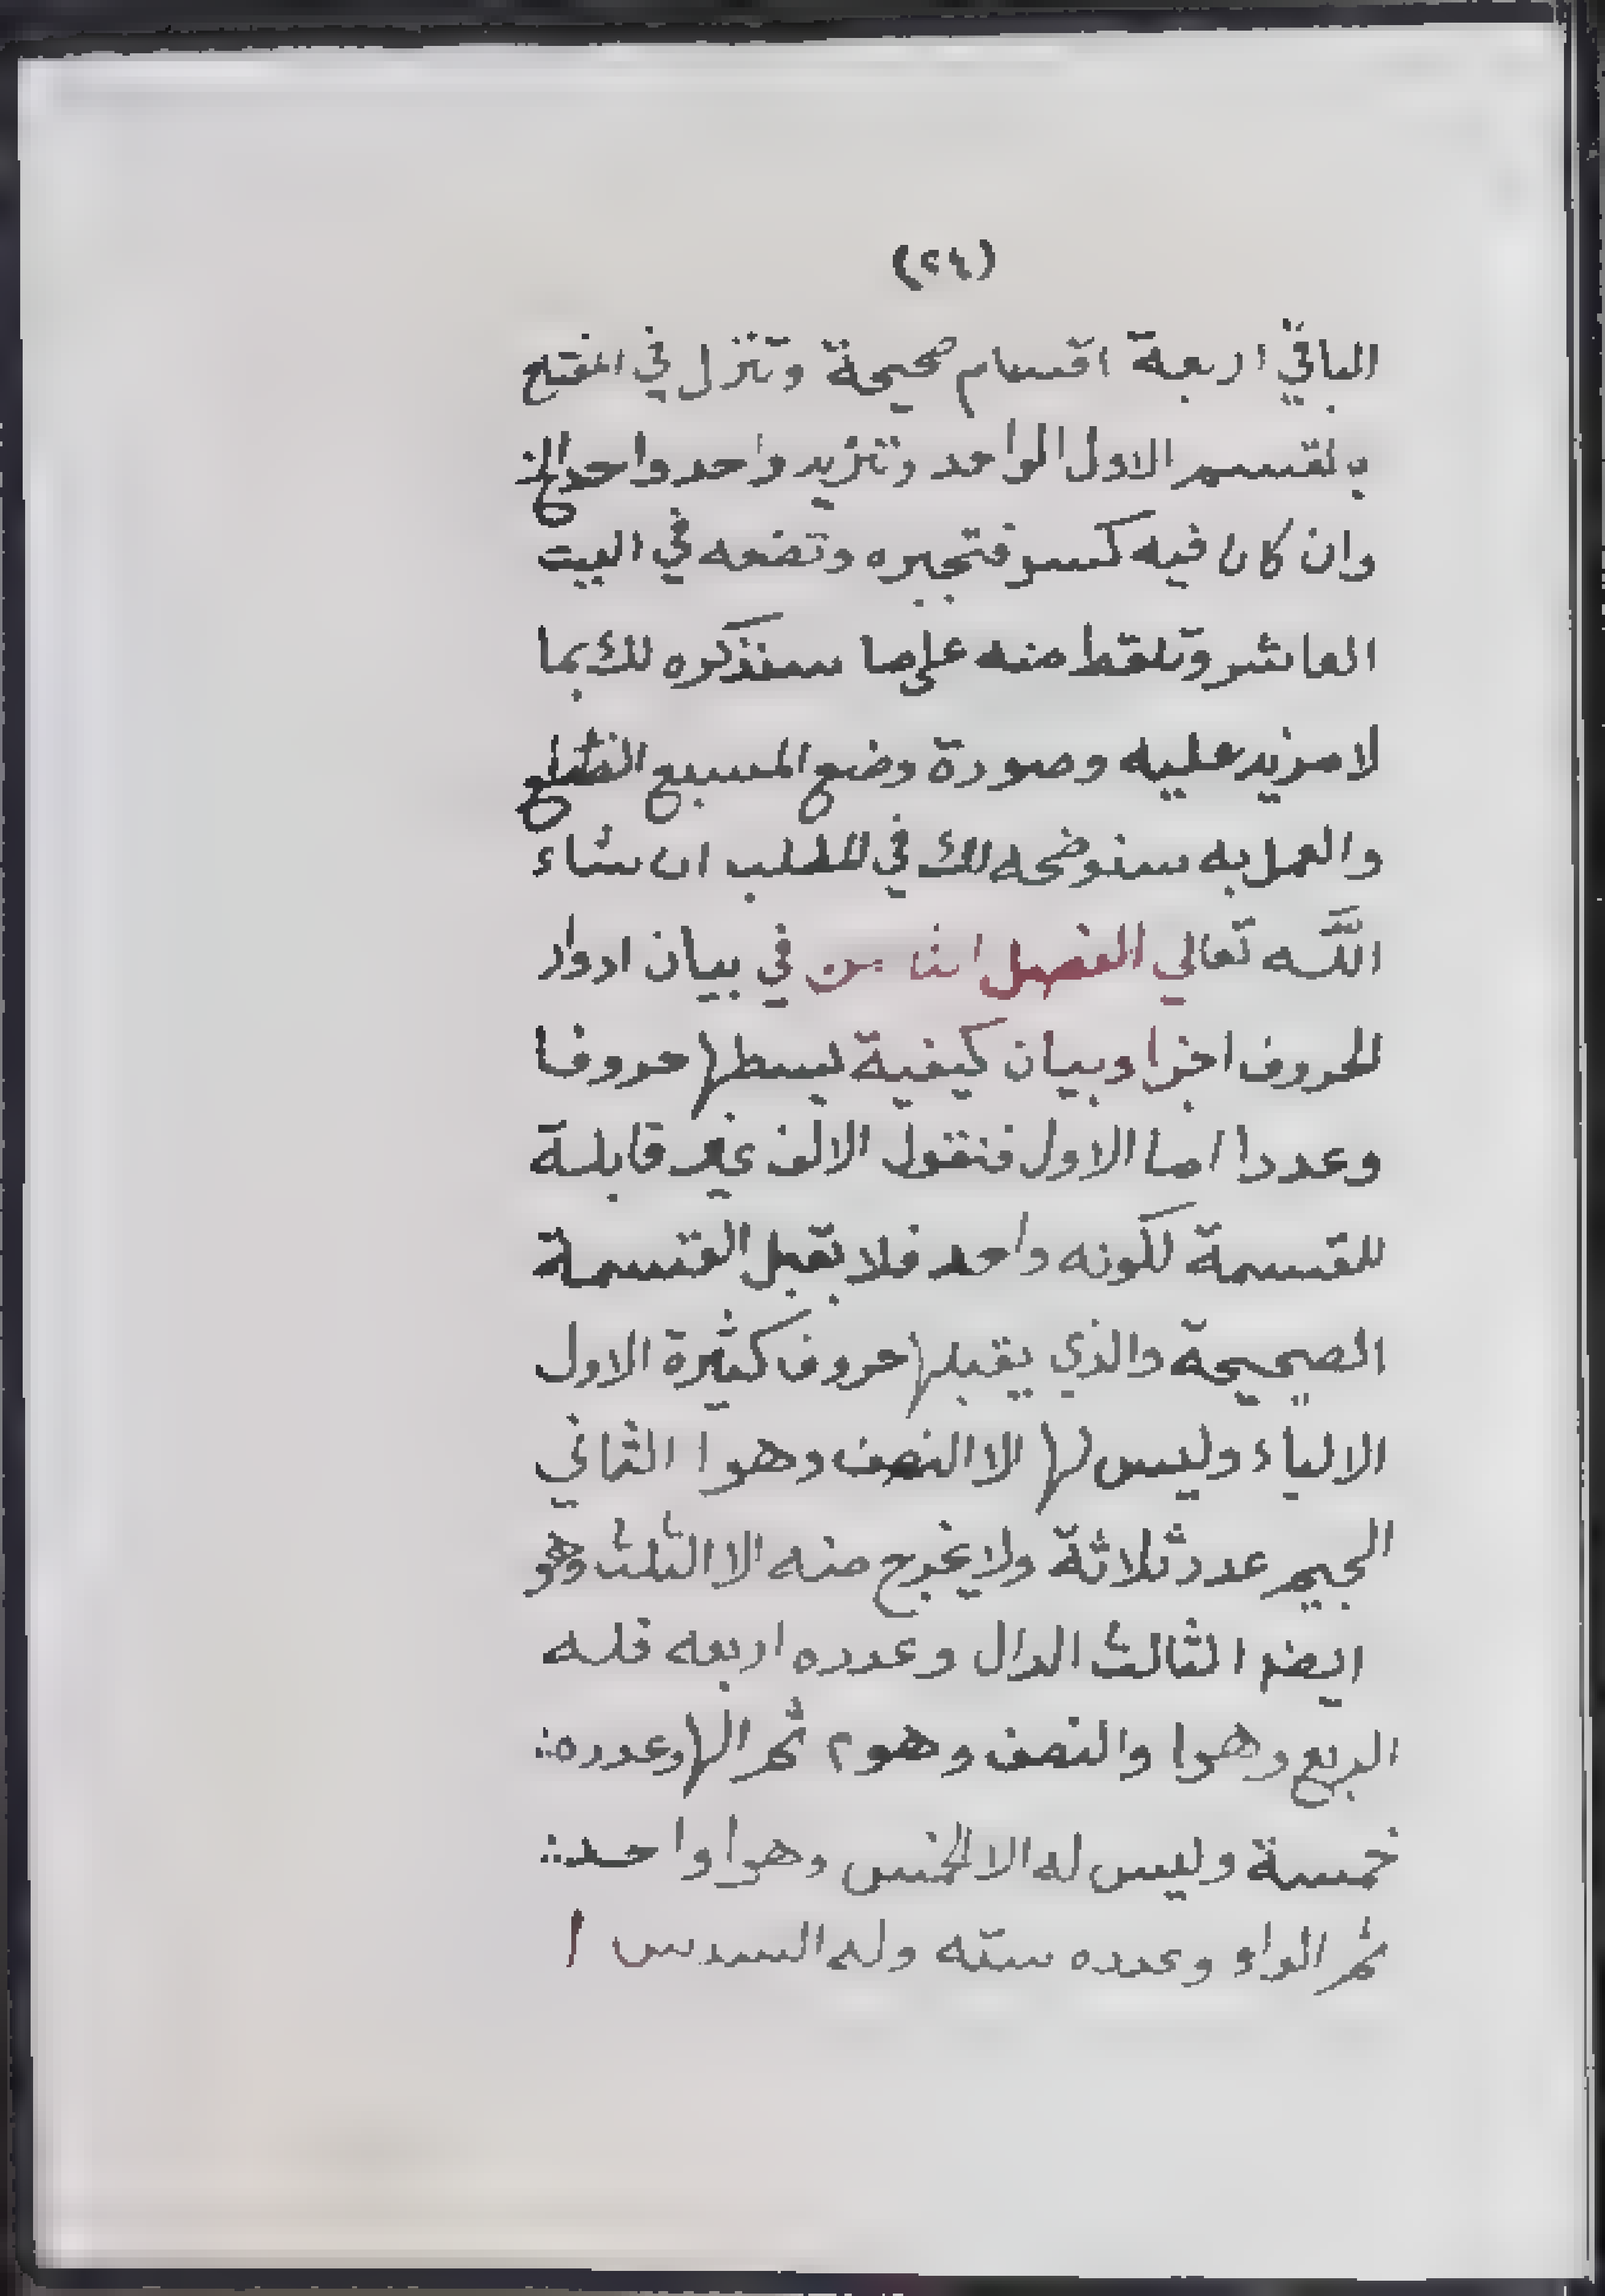 (٢٤)
الباقي اربعة اقسام صحيحة وتنزل في المفتح
بالقسم الاول الواحد وتزيد واحد واحد الخ
وان كان فيه كسر فتجبره وتضعه في البيت
العاشر وتلقط منه علي ما سنذكره لك بما
لا مزيد عليه وصورة وضع المسبع
والعمل به سنوضحه لك في المطلب ان شاء
اللّه تعالي الفصل الثامن في بيان ادوار
الحروف اجزا وبيان كيفية بسطها حروفا
وعددا اما الاول فنقول الالف غير قابلة
للقسمة لكونه واحد فلا يقبل القسمة
الصحيحة والذي يقبلها حروف كثيرة الاول
الالباء وليس لها الا النصف وهو ا الثاني
الجيم عدد ثلاثة ولا يخرج منه الا الثلث وهو
ايضا الثالث الدال وعدده اربعه فله
الربع وهو ا والنصف وهو ٢ ثم الها وعدده
خمسة وليس له الا الخمس وهو ا واحد
ثم الواو وعدده سته وله السدس ا